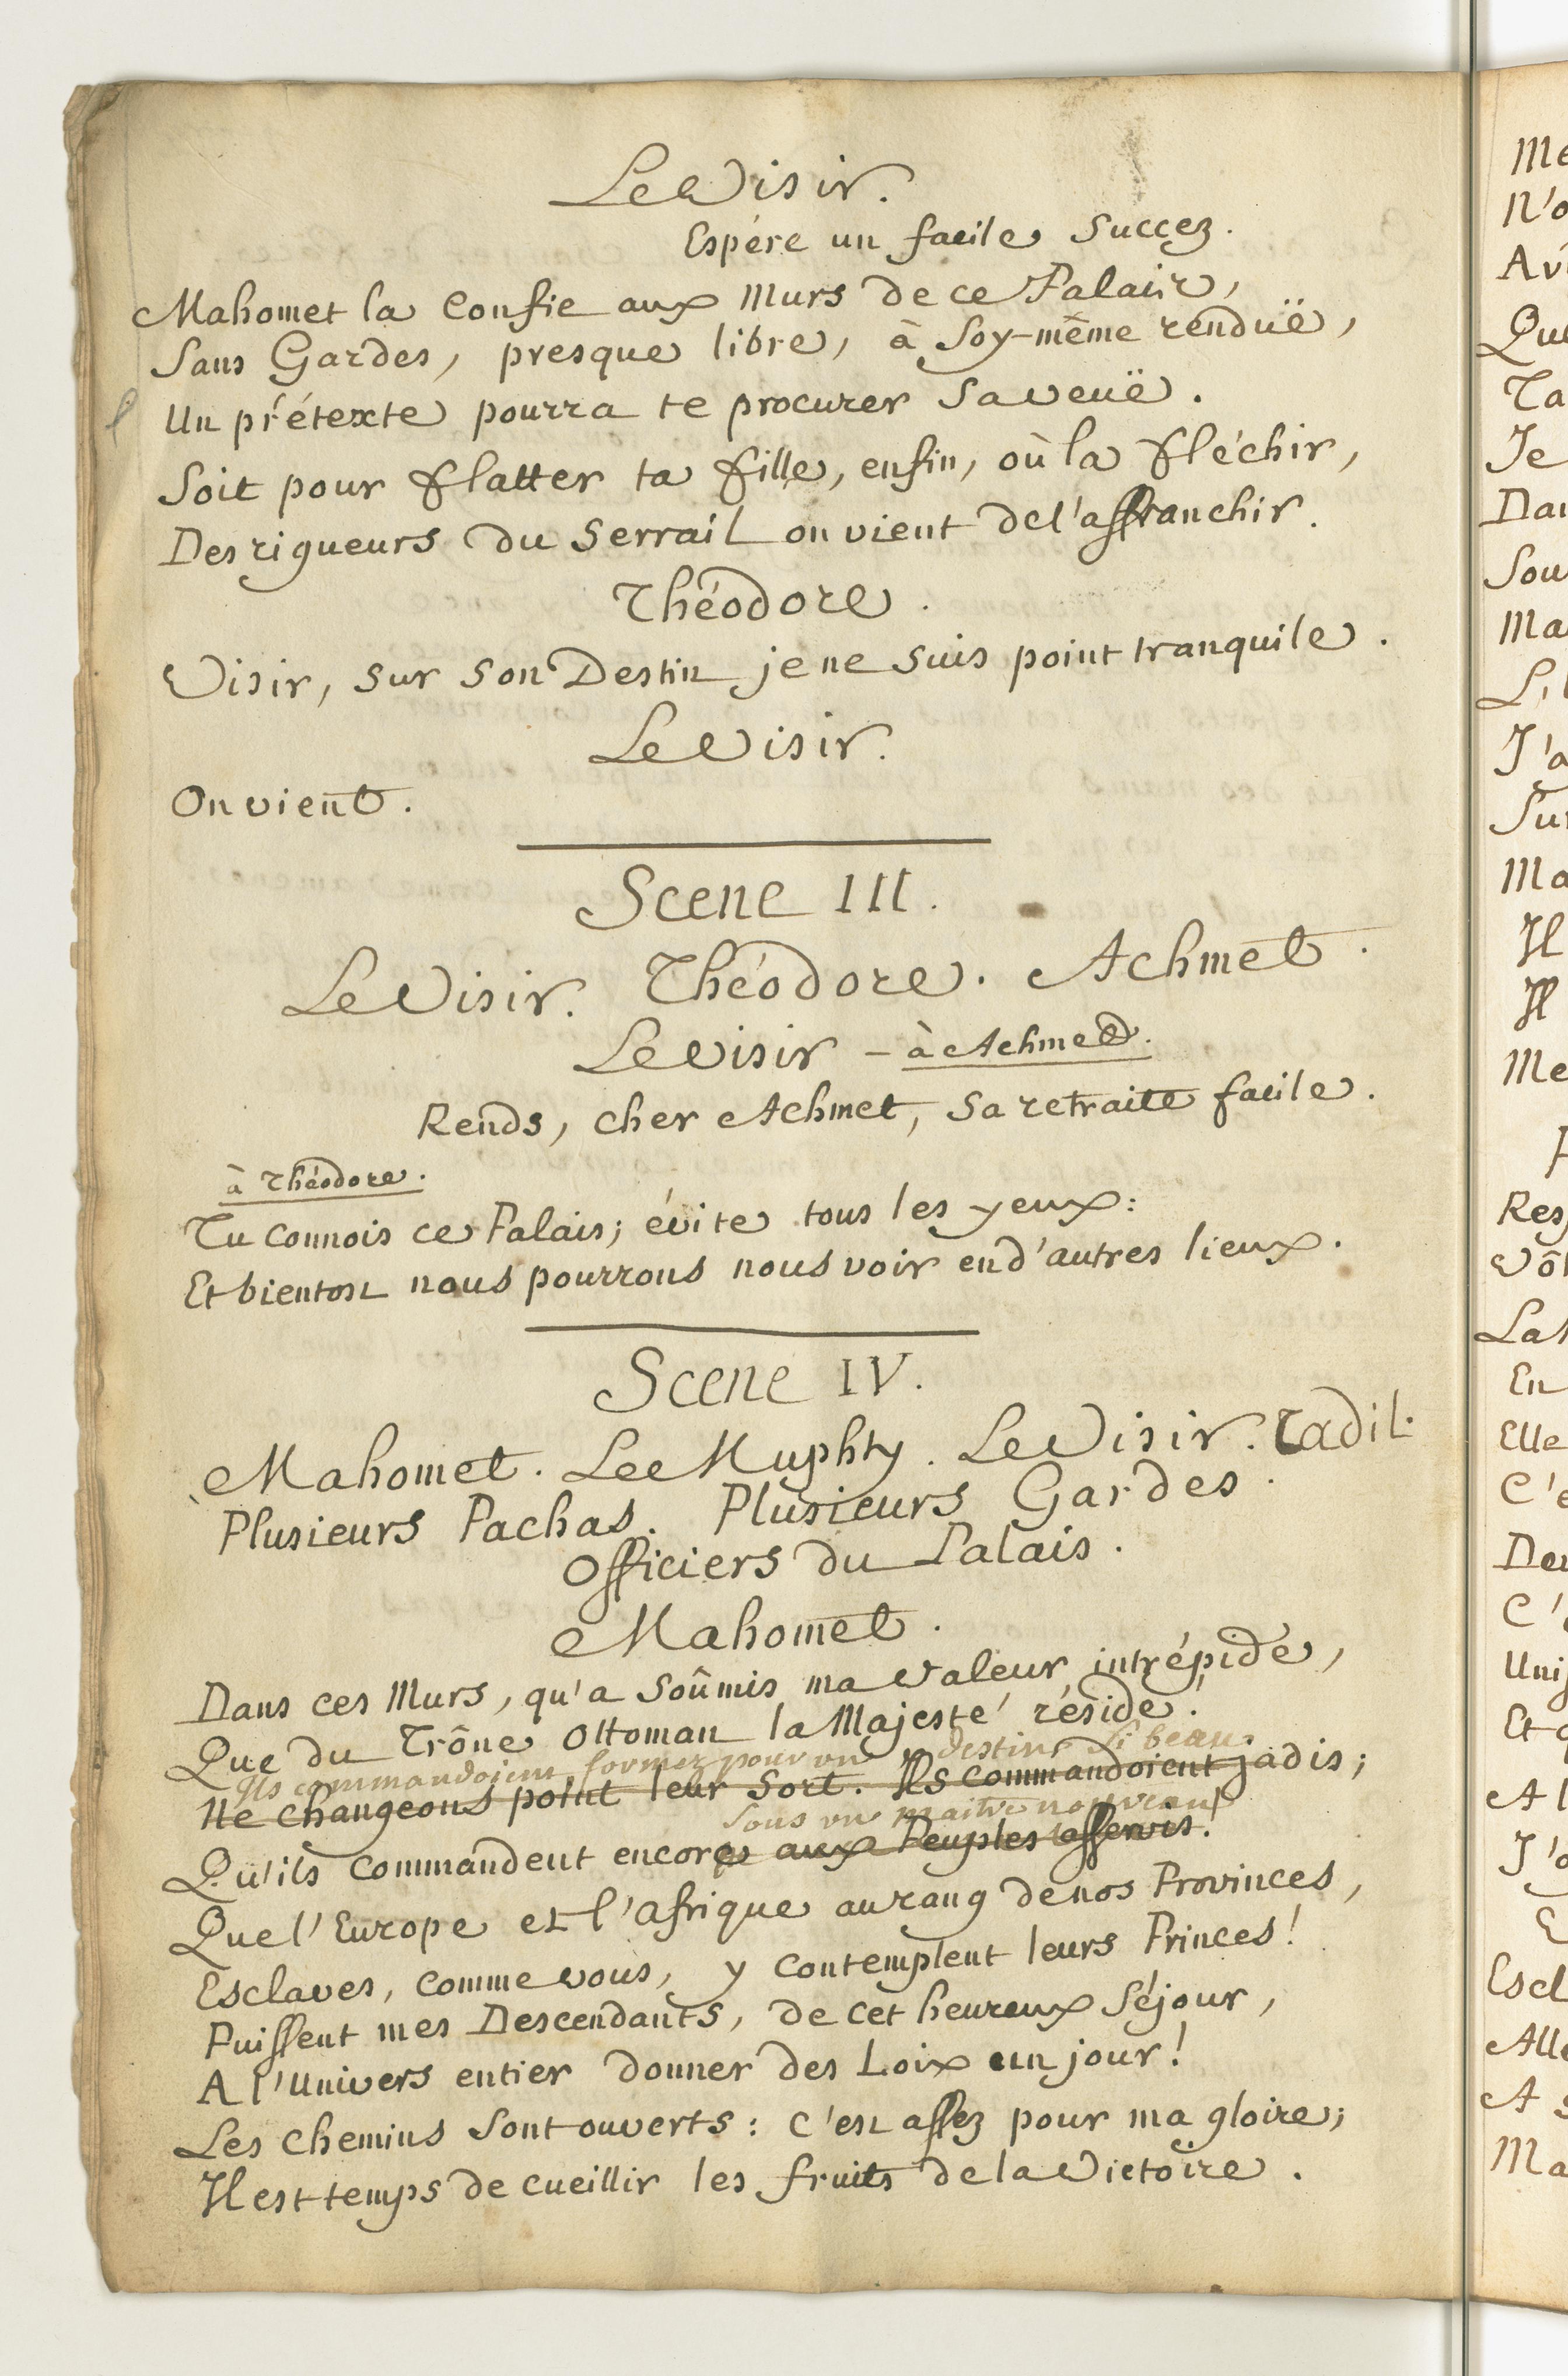 Le Visir.
Espére un facile Succez.
Mahomet la Confie aux Murs de ce Palais,
Sans Gardes, presque libre, à Soy-même renduë,
Un prétexte pourra te procurer Sa veuë.
Soit pour flatter ta fille, enfin, où la fléchir,
Des rigueurs du Serrail on vient de l'affranchir.
Théodore.
Visir, sur son Destin je ne suis point tranquile.
Le Visir.
On vient.
Scene III.
Le Visir. Théodore. Achmet.
Le Visir – à Achmet.
Rends, cher Achmet, sa retraite facile.
à Théodore.
Tu connois ce Palais; évite tous les yeux:
Et bientost nous pourrons nous voir en d'autres lieux.
Scene IV.
Mahomet. Le Muphty. Le Visir. Tadil.
Plusieurs Pachas. Plusieurs Gardes.
Officiers du Palais.
Mahomet.
Dans ces Murs, qu'a Soûmis ma valeur intrépide,
Que du Trône Ottoman la Majesté réside!
Ils commandoient formez pour un destin si beau
Ne changeons point leur Sort. Ils commandoient jadis;
Sous un maitre nouveau
Qu'ils commandent encore aux Peuples asservis.
Que l'Europe et l'Afrique au rang de nos Provinces,
Esclaves, comme vous, y contemplent leurs Princes!
Puissent mes Descendants, de cet heureux Séjour,
A l'Univers entier donner des Loix un jour!
Les chemins sont ouverts: c'est assez pour ma gloire;
Il est temps de cueillir les fruits de la Victoire.
Me
N'o
Av
Que
Ta
Je
Dan
Sou
Ma
J'a
Su
Ma
Il
Il
Me
Res
Vô
La
En
Elle
C'e
C'
Uni
Et
A l
J'o
Escl
Alle
A s
Ma